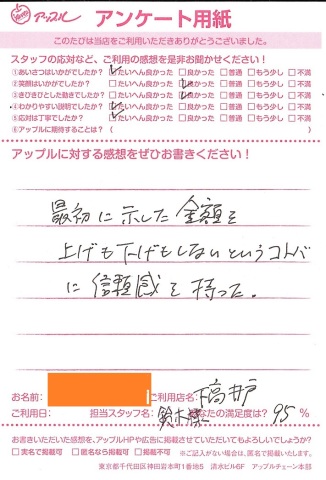 アップル アンケート用紙
このたびは当店をご利用いただきありがとうございました。
スタッフの応対など、ご利用の感想を是非お聞かせください！
①あいさつはいかがでしたか？ □たいへん良かった □良かった □普通 □もう少し □不満
②笑顔はいかがでしたか？ □たいへん良かった □良かった □普通 □もう少し □不満
③きびきびとした動きでしたか？ □たいへん良かった □良かった □普通 □もう少し □不満
④わかりやすい説明でしたか？ □たいへん良かった □良かった □普通 □もう少し □不満
⑤応対は丁寧でしたか？ □たいへん良かった □良かった □普通 □もう少し □不満
⑥アップルに期待することは？ ( )
アップルに対する感想をぜひお書きください！
最初に示した金額を
上げも下げもしないというコトバ
に信頼感を持った。
お名前: ご利用店名: 下高井戸
ご利用日: 担当スタッフ名: 鈴木様 あなたの満足度は? 95 %
お書きいただいた感想を、アップルHPや広告に掲載させていただいてもよろしいでしょうか?
□実名で掲載可 □匿名なら掲載可 □掲載不可 ※ご記入がない場合は、匿名で掲載いたします。
東京都千代田区神田岩本町1番地5 清水ビル6F アップルチェーン本部